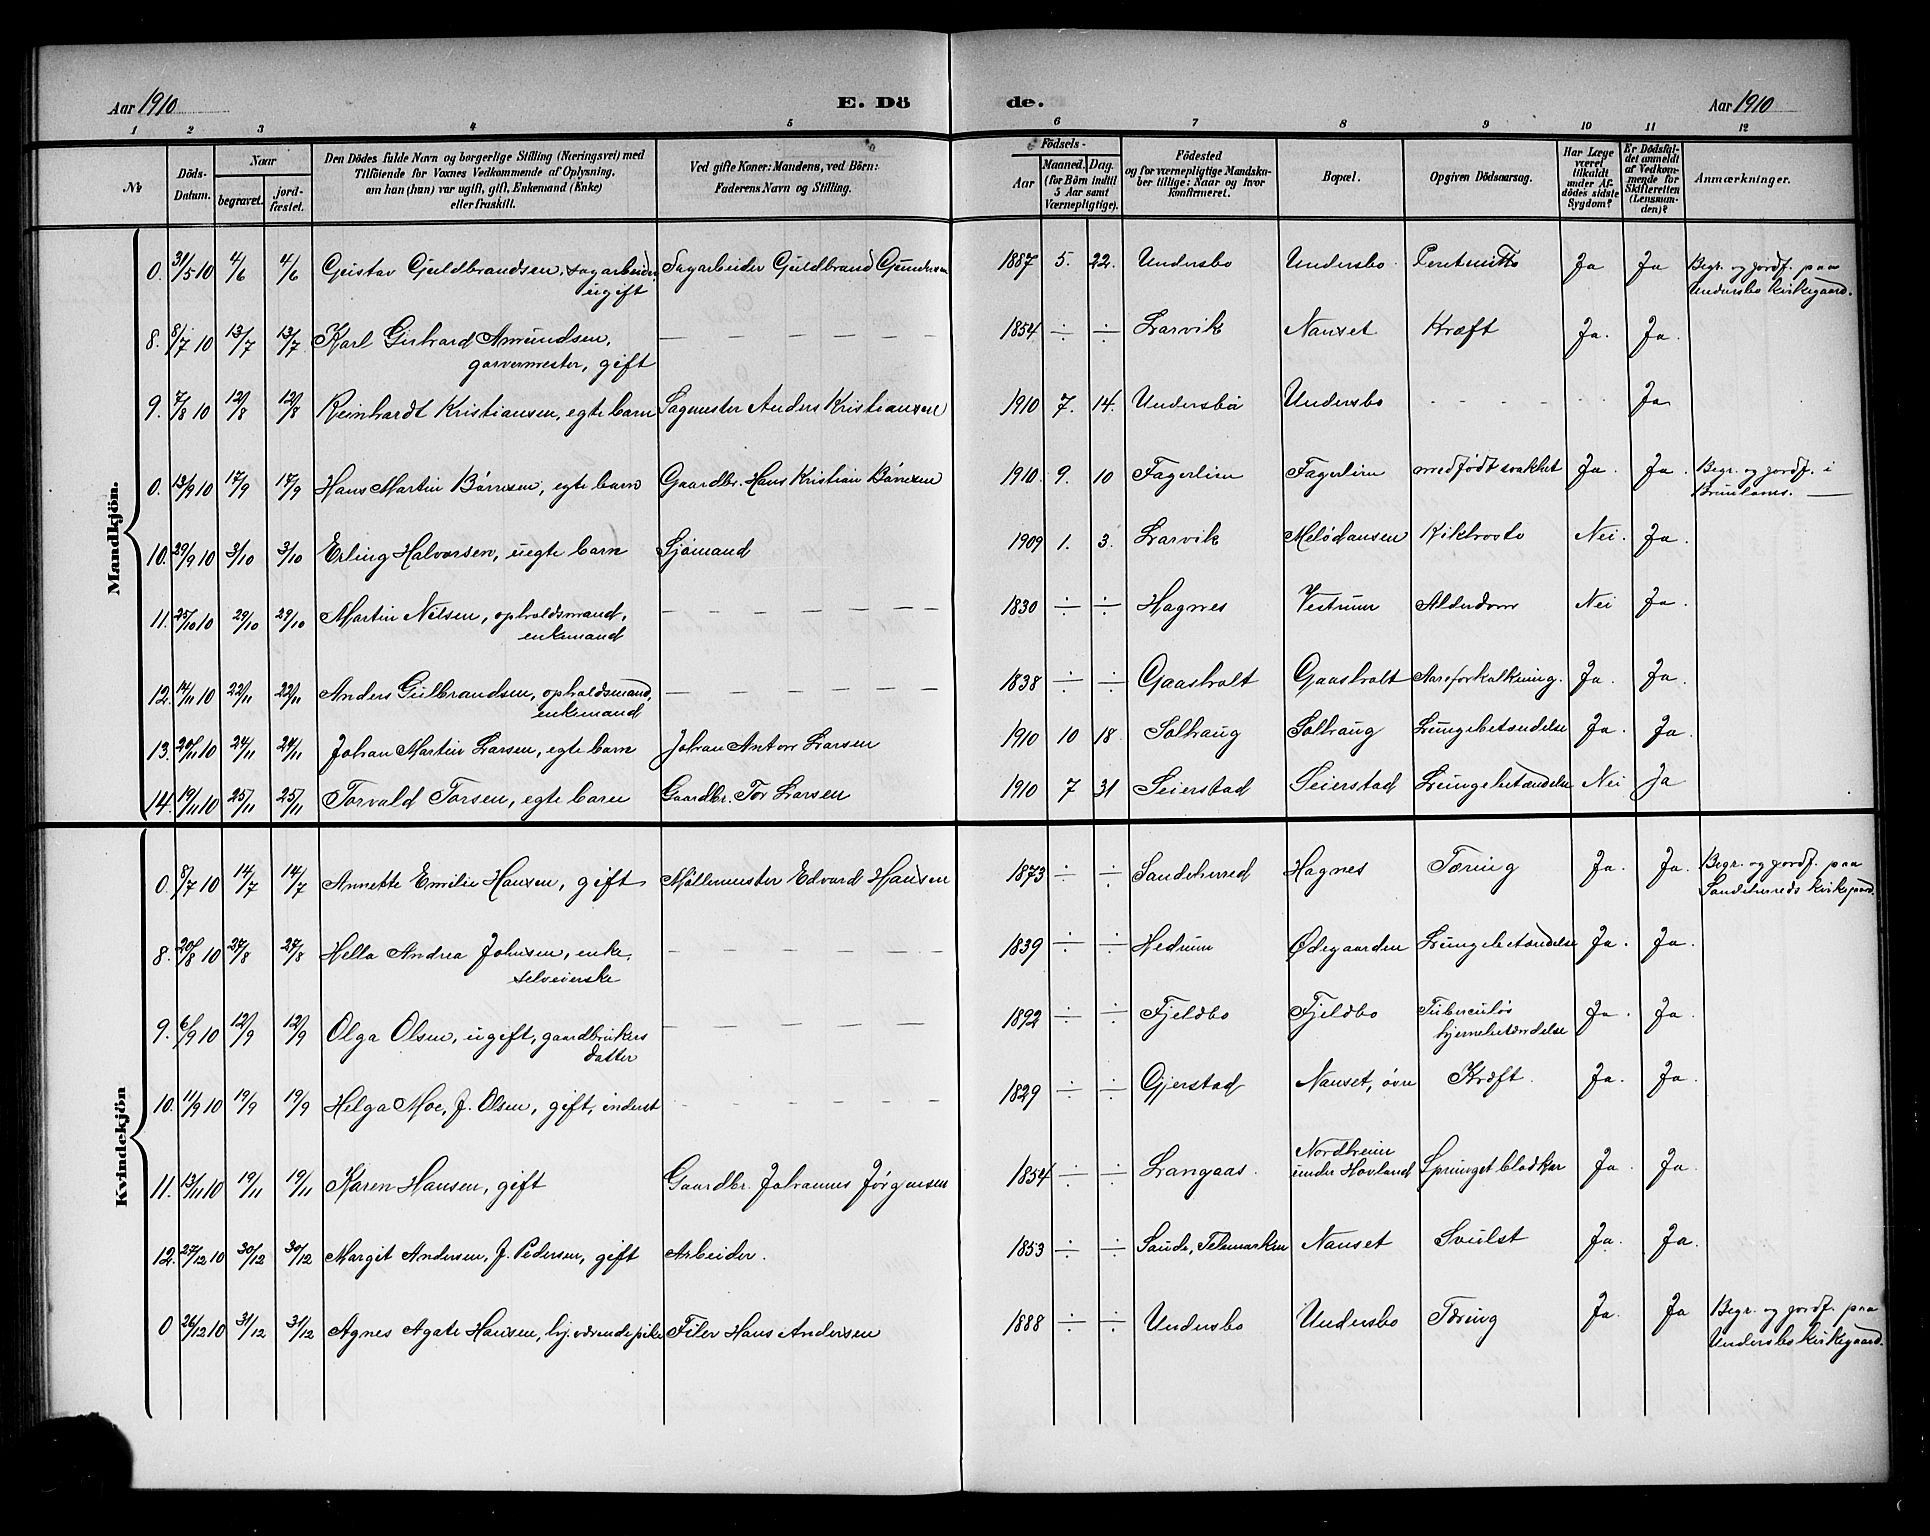 Aar 1910 E. Dö de. Aar 1910
1 2 3 4 5 6 7 8 9 10 11 12
№ Döds-Datum. Naar begravet. jordfæstet. Den Dödes fulde Navn og borgerlige Stilling (Næringsvei) med Tilföiende for Voxnes Vedkommende af Oplysning, om han (hun) var ugift, gift, Enkemand (Enke) eller fraskilt. Ved gifte Koner: Mandens, ved Börn: Faderens Navn og Stilling. Födsels- Aar Maaned. Dag. (for Börn indtil 5 Aar samt Værnepligtige). Födested og for værnepligtige Mandskaber tillige: Naar og hvor konfirmeret. Bopæl. Opgiven Dödsaarsag. Har Læge været tilkaldt under Afdödes sidste Sygdom? Er Dödsfaldet anmeldt af Vedkommende for Skifteretten (Lensmanden)? Anmærkninger.
Mandkjön.
0. 31/5 10 4/6 4/6 Gustav Guldbrandsen, sagarbeider, ugift Sagarbeider Guldbrand Gundersen 1887 5. 22. Undersbo Undersbo Ja Ja Begr. og jordf. paa Undersbo kirkegaard.
8. 8/7 10 13/7 13/7 Karl Gerhard Amundsen, garvermester, gift — — — — — — 1854 ÷ ÷ Larvik Nanset Kræft Ja. Ja.
9. 7/8 10 12/8 12/8 Reinhardt Kristiansen, egte barn Sagmester Anders Kristiansen 1910 7. 14. Undersbo Undersbo - - - - - - Ja
0. 13/9 10 17/9 17/9 Hans Martin Börresen, egte barn Gaardbr. Hans Kristian Börresen 1910. 9. 10 Fagerlien Fagerlien medfödt svakhet Ja. Ja. Begr. og jordf. i Brunlanes. —
10. 29/9 10 3/10 3/10 Erling Halvorsen, uegte barn Sjömand 1909 1. 3. Larvik Melödansen Kikhoste Nei. Ja.
11. 25/10 10 29/10 29/10 Martin Nilsen, opholdsmand, enkemand — — — — — — 1830 ÷ ÷ Hagnes Vestrum Alderdom Nei Ja.
12. 14/11 10 22/11 22/11 Anders Gulbrandsen, opholdsmand, enkemand — — — — — — 1838 ÷ ÷ Gaasholt Gaasholt Aareforkalkning. Ja. Ja.
13. 20/11 10 24/11 24/11 Johan Martin Larsen, egte barn Johan Anton Larsen 1910 10 18 Solhaug Solhaug Lungebetændelse Ja. Ja.
14. 19/11 10 25/11 25/11 Torvald Torsen, egte barn Gaardbr. Tor Larsen 1910 7 31 Seierstad Seierstad Lungebetændelse Nei Ja
Kvindekjön
0. 8/7 10 14/7 14/7 Annette Emilie Hansen, gift Möllemester Edvard Hansen 1873 ÷ ÷ Sandeherred Hagnes Tæring Ja. Ja. Begr. og jordf. paa Sandeherreds kirkegaard.
8. 20/8 10 27/8 27/8 Hella Andrea Johnsen, enke, selveierske — — — — — — 1839 ÷ ÷ Hedrum Ødegaarden Lungebetændelse Ja. Ja.
9. 6/9 10 12/9 12/9 Olga Olsen, ugift, gaardbrukers datter — — — — — — 1892 ÷ ÷ Fjeldbo Fjeldbo Tuberculøs hjernebetændelse Ja. Ja.
10. 11/9 10 19/9 19/9 Helga Moe, f. Olsen, gift, inderst - — — — — — 1829 ÷ ÷ Gjerstad Nanset, övre Kræft. Ja. Ja.
11. 13/11 10 19/11 19/11 Karen Hansen, gift Gaardbr. Johannes Jørgensen 1854 ÷ ÷ Langaas. Nordheim under Hovland Sprunget blodkar Ja. Ja.
12. 27/12 10 30/12 30/12 Margit Andersen, f. Pedersen, gift Arbeider. 1853 ÷ ÷ Saude, Telemarken Nanset Svulst Ja. Ja.
0 26/12 10 31/12 31/12 Agnes Agate Hansen, hj. værende pike Filer Hans Andersen 1888 ÷ ÷ Undersbo Undersbo Tæring Ja. Ja Begr. og jordf. paa Undersbo kirkegaard.